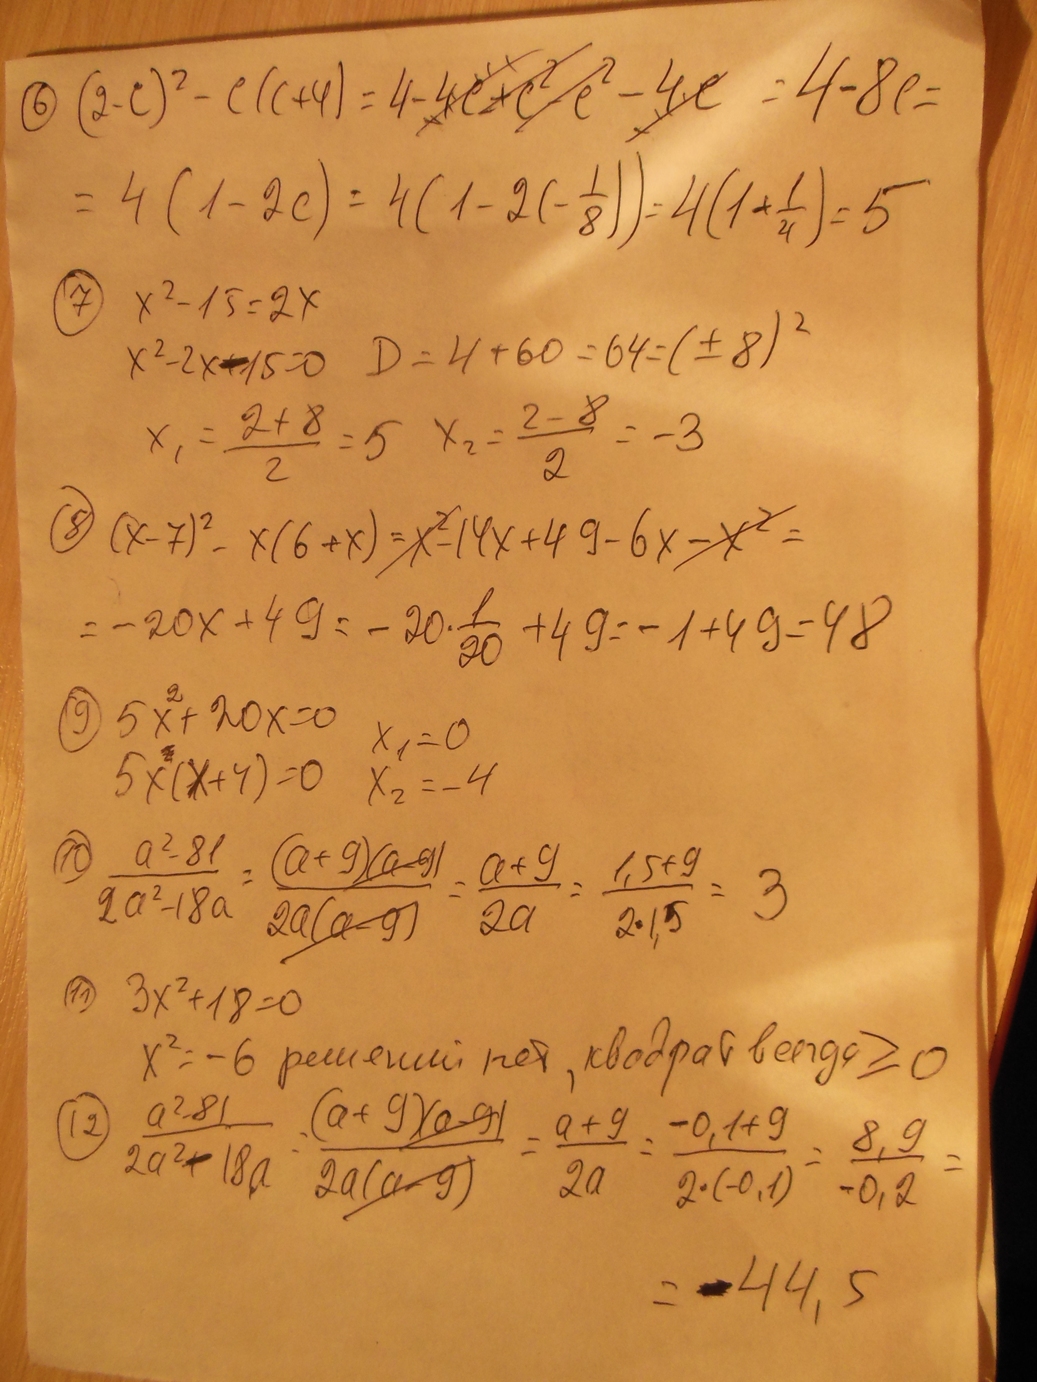 ⑥ (2-c)² - c(c+4) = 4-4c+c²-c²-4c = 4-8c=
= 4(1-2c) = 4(1-2(-1/8)) = 4(1+1/4) = 5
⑦ x²-15=2x
x²-2x-15=0 D=4+60=64=(±8)²
x₁ = (2+8)/2 = 5 x₂ = (2-8)/2 = -3
⑧ (x-7)² - x(6+x) = x²-14x+49-6x-x² =
= -20x+49 = -20·1/20+49=-1+49=48
⑨ 5x²+20x=0 x₁=0
5x(x+4)=0 x₂=-4
⑩ (a²-81)/(2a²-18a) = ((a+9)(a-9))/(2a(a-9)) = (a+9)/(2a) = (1,5+9)/(2·1,5) = 3
⑪ 3x²+18=0
x²=-6 решений нет, квадрат всегда ≥ 0
⑫ (a²-81)/(2a²-18a) = ((a+9)(a-9))/(2a(a-9)) = (a+9)/(2a) = (-0,1+9)/(2·(-0,1)) = 8,9/-0,2 =
= -44,5